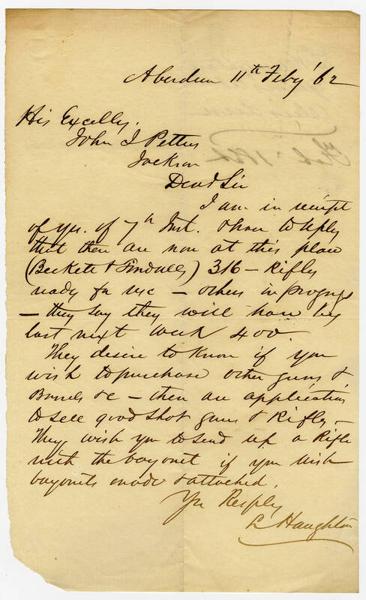 Aberdeen 11th Feby '62
His Excelley.
John J Pettus
Jackson
Dear Sir
I am in receipt
of yrs. of 7th Inst. & have to reply
that there are now at this place
(Beckett & Tindalls) 316 - Rifles
ready for use - others in progress
- they say they will have by
last next week 400.
They desire to know if you
wish to purchase other guns &
Barrels &c - there are applications
to sell good shot guns & Rifles -
They wish you to send up a Rifle
with the bayonet if you wish
bayonets made & attached.
Yrs Respfly
L Haughton